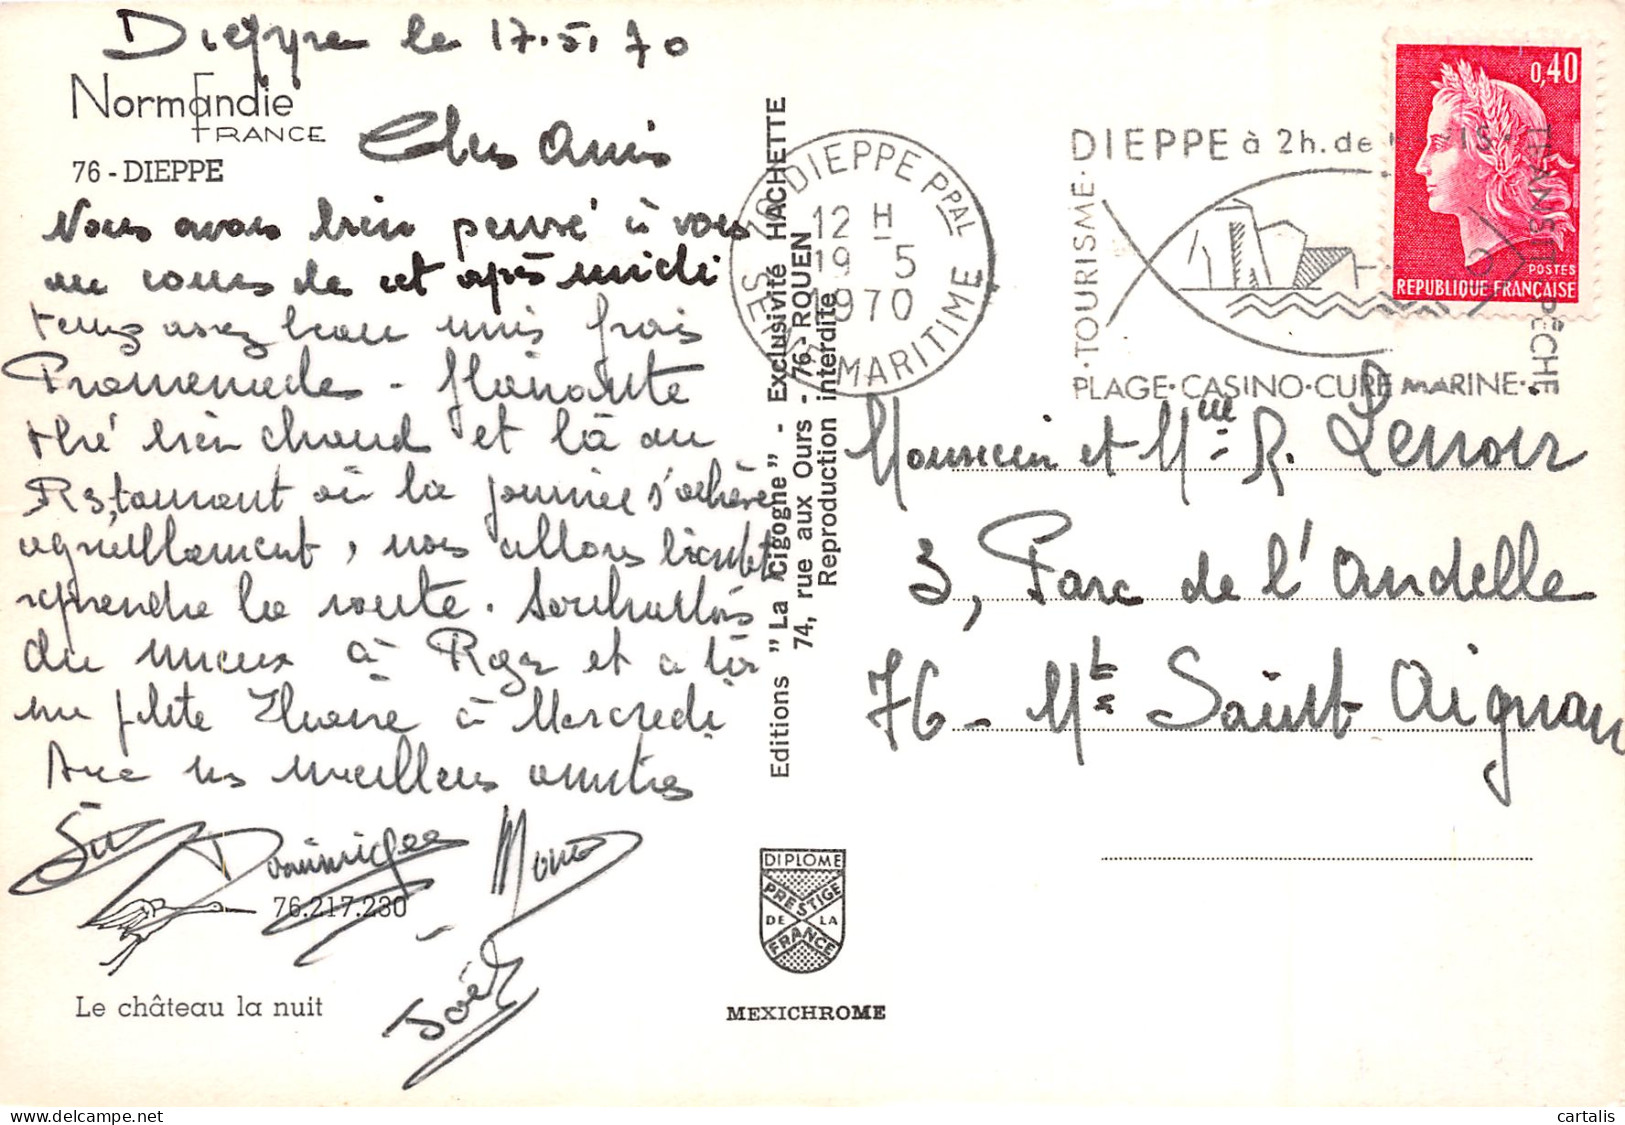 Dieppe le 17.5.70
Normandie
FRANCE
76 - DIEPPE
Chers Amis
Nous avons bien pensé à vous
au cours de cet après midi
temps assez beau mais frais
Promenade - flânante
thé bien chaud et là au
Restaurant où la journée s'achève
agréablement, nous allons bientôt
reprendre la route. Souhaitons
du mieux à Roger et a
une ptite à Mercredi
Avec nos meilleurs amitiés
Dominique
Joël
76.217.230
Le château la nuit
Editions "La Cigogne" - Exclusivité HACHETTE
74, rue aux Ours - 76 - ROUEN
Reproduction interdite
DIPLOME
PRESTIGE
DE LA
FRANCE
MEXICHROME
76 DIEPPE PPAL
12 H
19 5
1970
SEINE MARITIME
DIEPPE à 2h. de PARIS
TOURISME
TRANSIT PÊCHE
PLAGE·CASINO·CURE MARINE
0,40
POSTES
REPUBLIQUE FRANÇAISE
Monsieur et Mme R. Lenoir
3, Parc de l'Andelle
76 - Mt Saint Aignan
cartalis